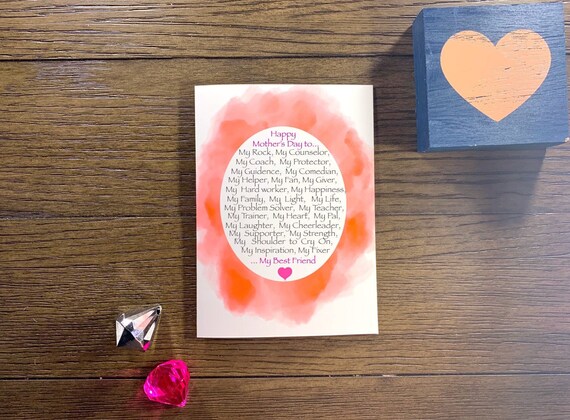 Happy
Mother's Day to...
My Rock, My Counselor,
My Coach, My Protector,
My Guidence, My Comedian,
My Helper, My Fan, My Giver,
My Hard worker, My Happiness,
My Family, My Light, My Life,
My Problem Solver, My Teacher,
My Trainer, My Heart, My Pal,
My Laughter, My Cheerleader,
My Supporter, My Strength,
My Shoulder to Cry On,
My Inspiration, My Fixer
... My Best Friend